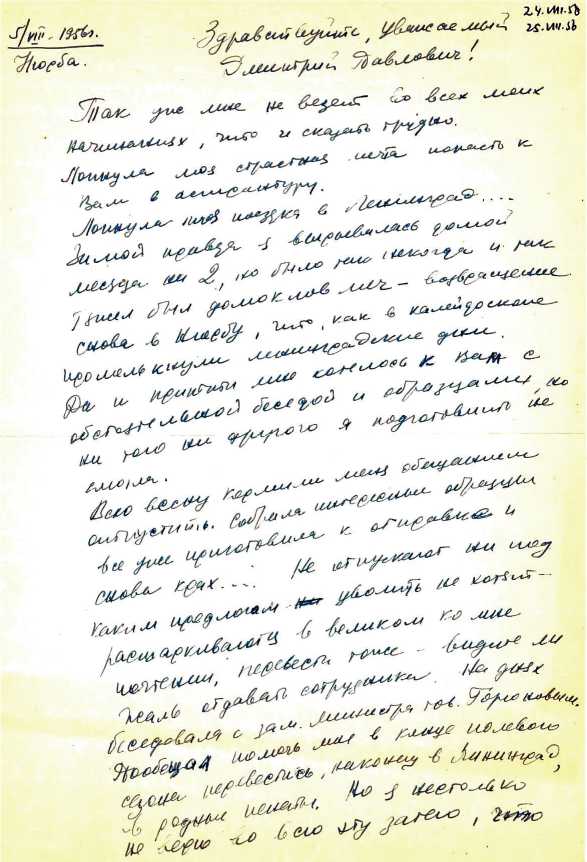 5/VIII - 1956г.
Нюрба.
24.VIII.56
25.VIII.56
Здравствуйте, уважаемый
Дмитрий Павлович!
Так уж мне не везет во всех моих
начинаниях, что и сказать трудно.
Лопнула моя страстная мечта попасть к
Вам в аспирантуру.
Лопнула моя поездка в Ленинград....
Зимой правда я вырывалась домой
месяца на 2, но было так некогда и так
висел был домоклов меч - возвращение
снова в Нюрбу, что, как в калейдоскопе
промелькнули ленинградские дни.
Да и придти мне хотелось к Вам с
обстоятельной беседой и образцами, но
ни того ни другого я подготовить не
смогла.
Всю весну кормили меня обещанием
отпустить. Собрала интересные образцы
все уже приготовила к отправке и
снова крах.... Не отпускают ни под
каким предлогом уволить не хотят -
расшаркиваются в великом ко мне
почтении, перевести тоже - видите ли
жаль отдавать сотрудника. На днях
беседовала с зам. министра тов. Горюновым.
Пообещал помочь мне в конце полевого
сезона перевестись, наконец в Ленинград,
в родные пенаты. Но я настолько
не верю во всю эту затею, что